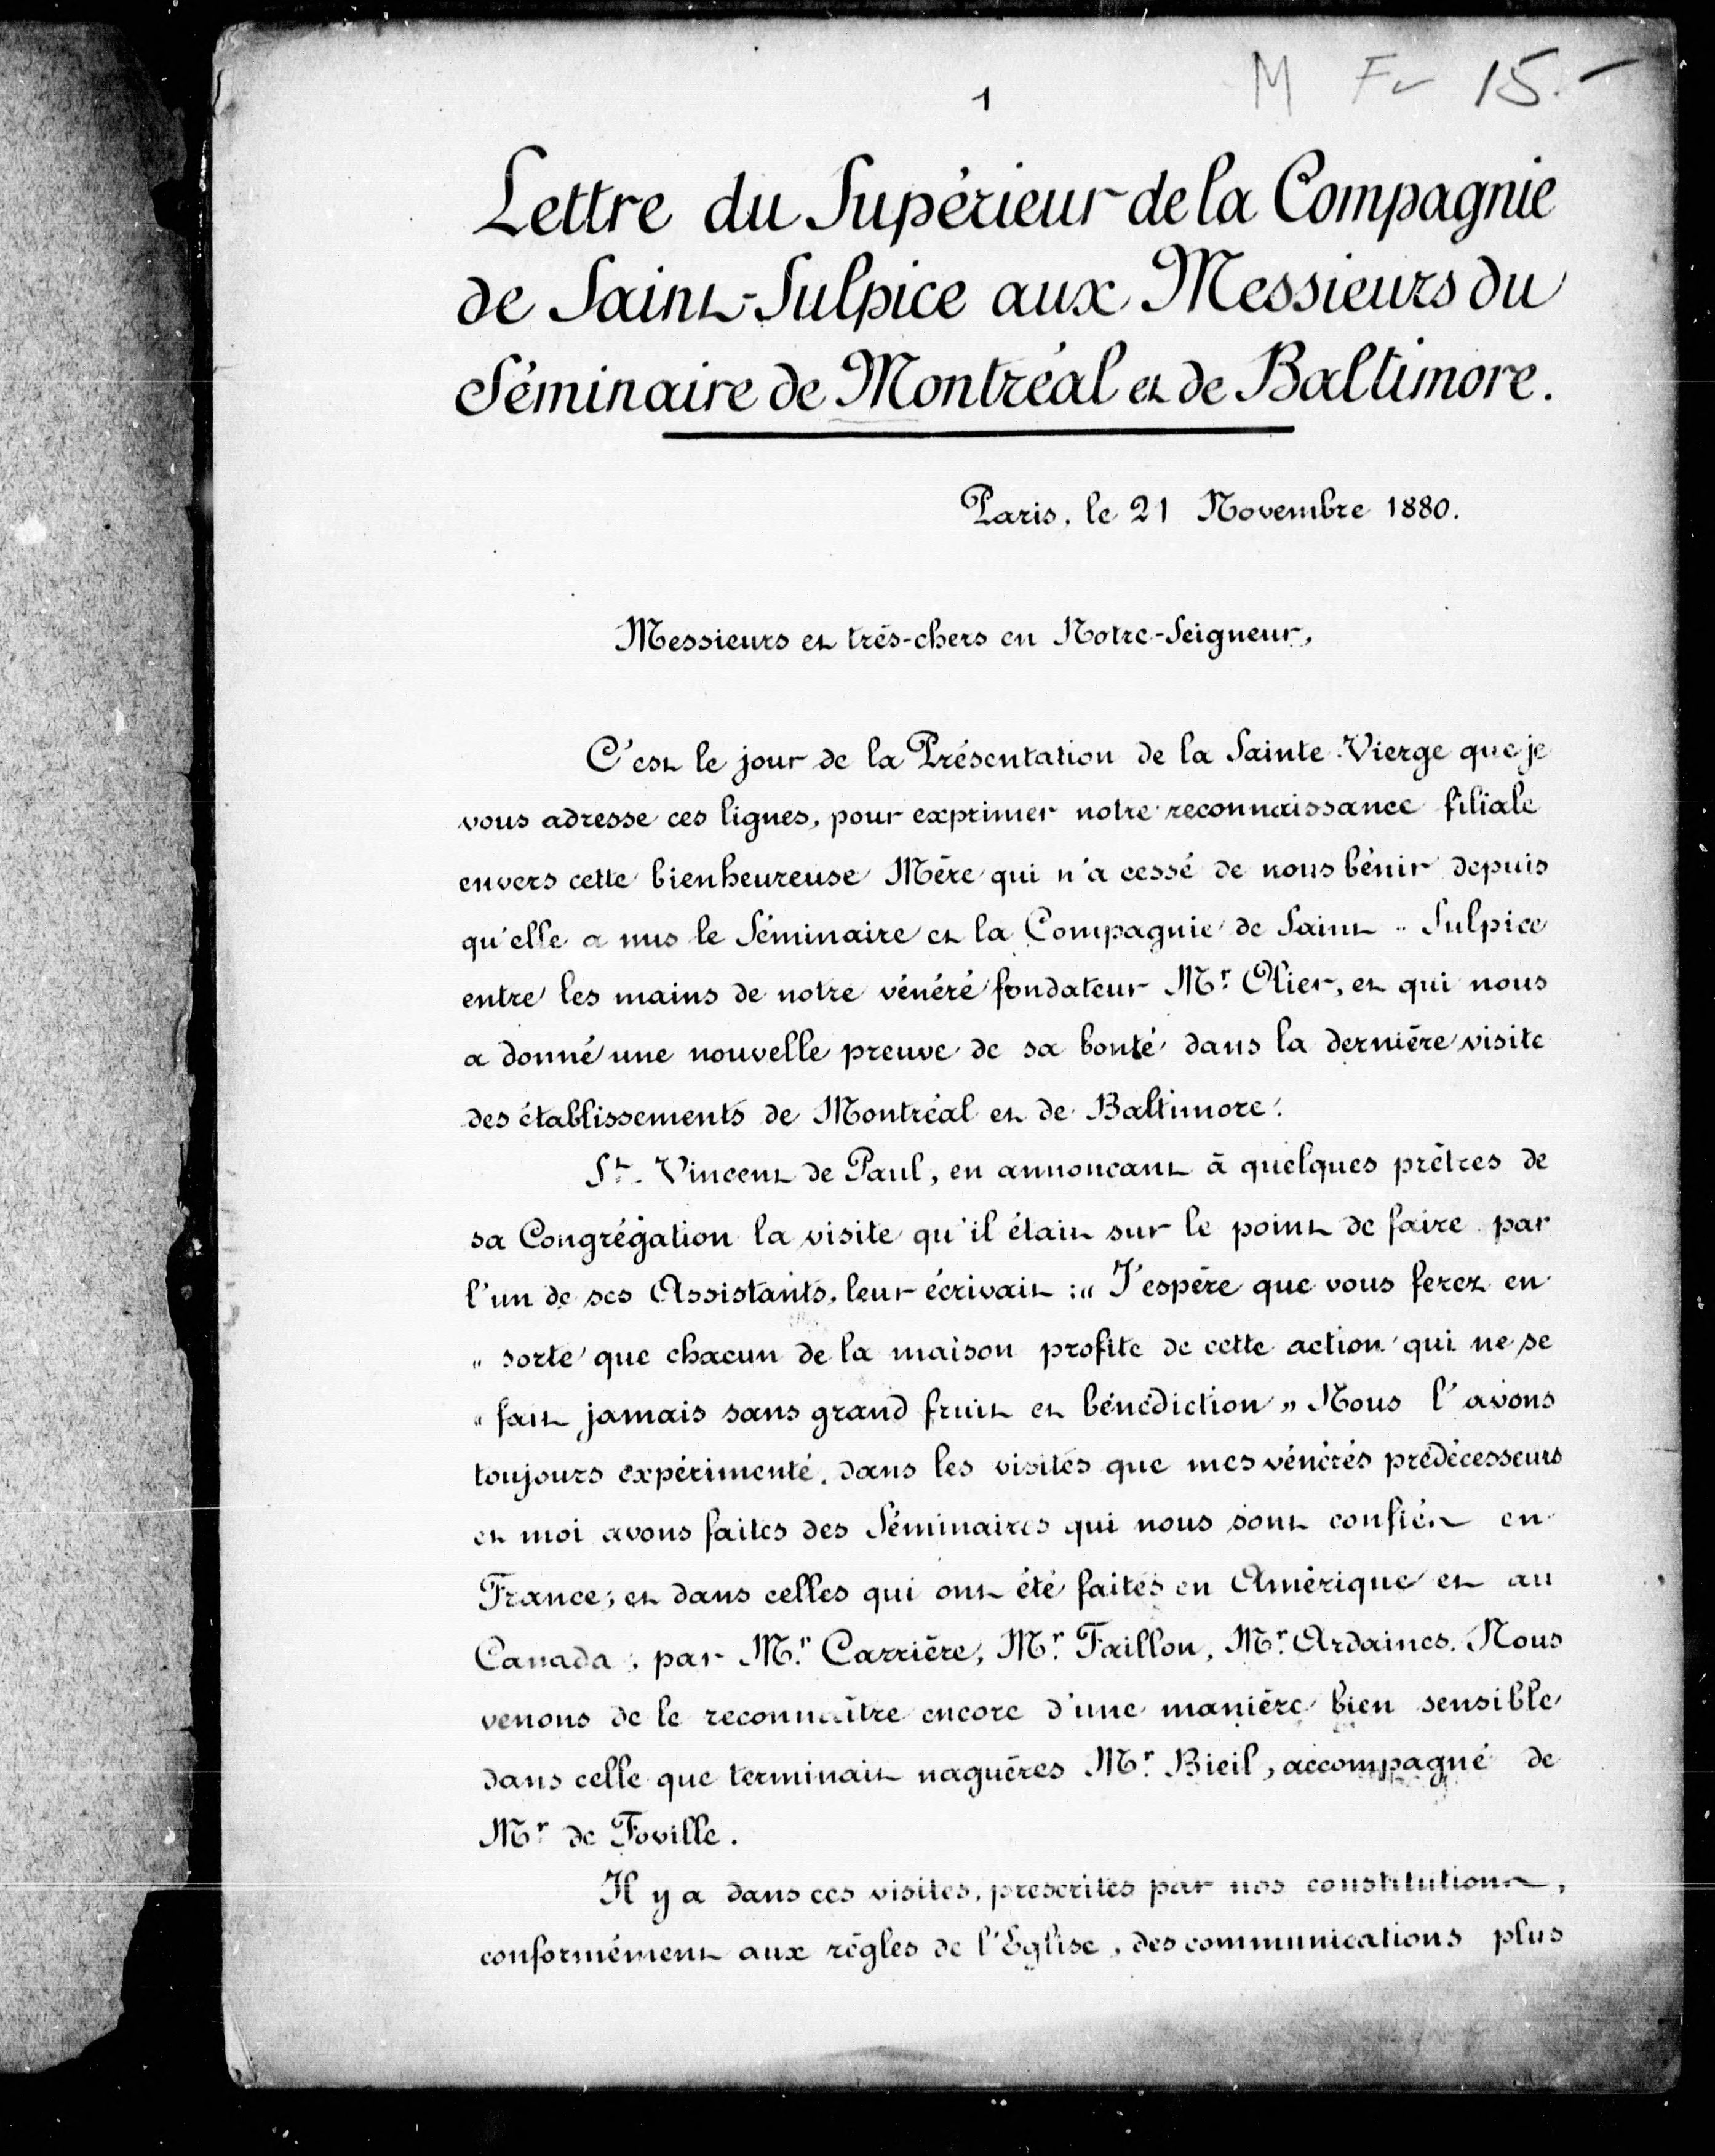 M Fr 15.-
1
Lettre du Supérieur de la Compagnie
de Saint-Sulpice aux Messieurs du
Séminaire de Montréal et de Baltimore.
Paris, le 21 Novembre 1880.
Messieurs et très-chers en Notre-Seigneur,
C'est le jour de la Présentation de la Sainte-Vierge que je
vous adresse ces lignes, pour exprimer notre reconnaissance filiale
envers cette bienheureuse Mère qui n'a cessé de nous bénir depuis
qu'elle a mis le Séminaire et la Compagnie de Saint-Sulpice
entre les mains de notre vénéré fondateur Mr. Olier, et qui nous
a donné une nouvelle preuve de sa bonté dans la dernière visite
des établissements de Montréal et de Baltimore.
St. Vincent de Paul, en annoncant à quelques prêtres de
sa Congrégation la visite qu'il était sur le point de faire par
l'un de ses Assistants, leur écrivait : « J'espère que vous ferez en
« sorte que chacun de la maison profite de cette action qui ne se
« fait jamais sans grand fruit et bénédiction » Nous l'avons
toujours expérimenté, dans les visites que mes vénérés prédécesseurs
et moi avons faites des Séminaires qui nous sont confiés en
France; et dans celles qui ont été faites en Amérique et au
Canada, par Mr. Carrière, Mr. Faillon, Mr. Ardaines. Nous
venons de le reconnaître encore d'une manière bien sensible
dans celle que terminait naguères Mr. Bieil, accompagné de
Mr. de Foville.
Il y a dans ces visites, prescrites par nos constitutions,
conformément aux règles de l'Eglise, des communications plus